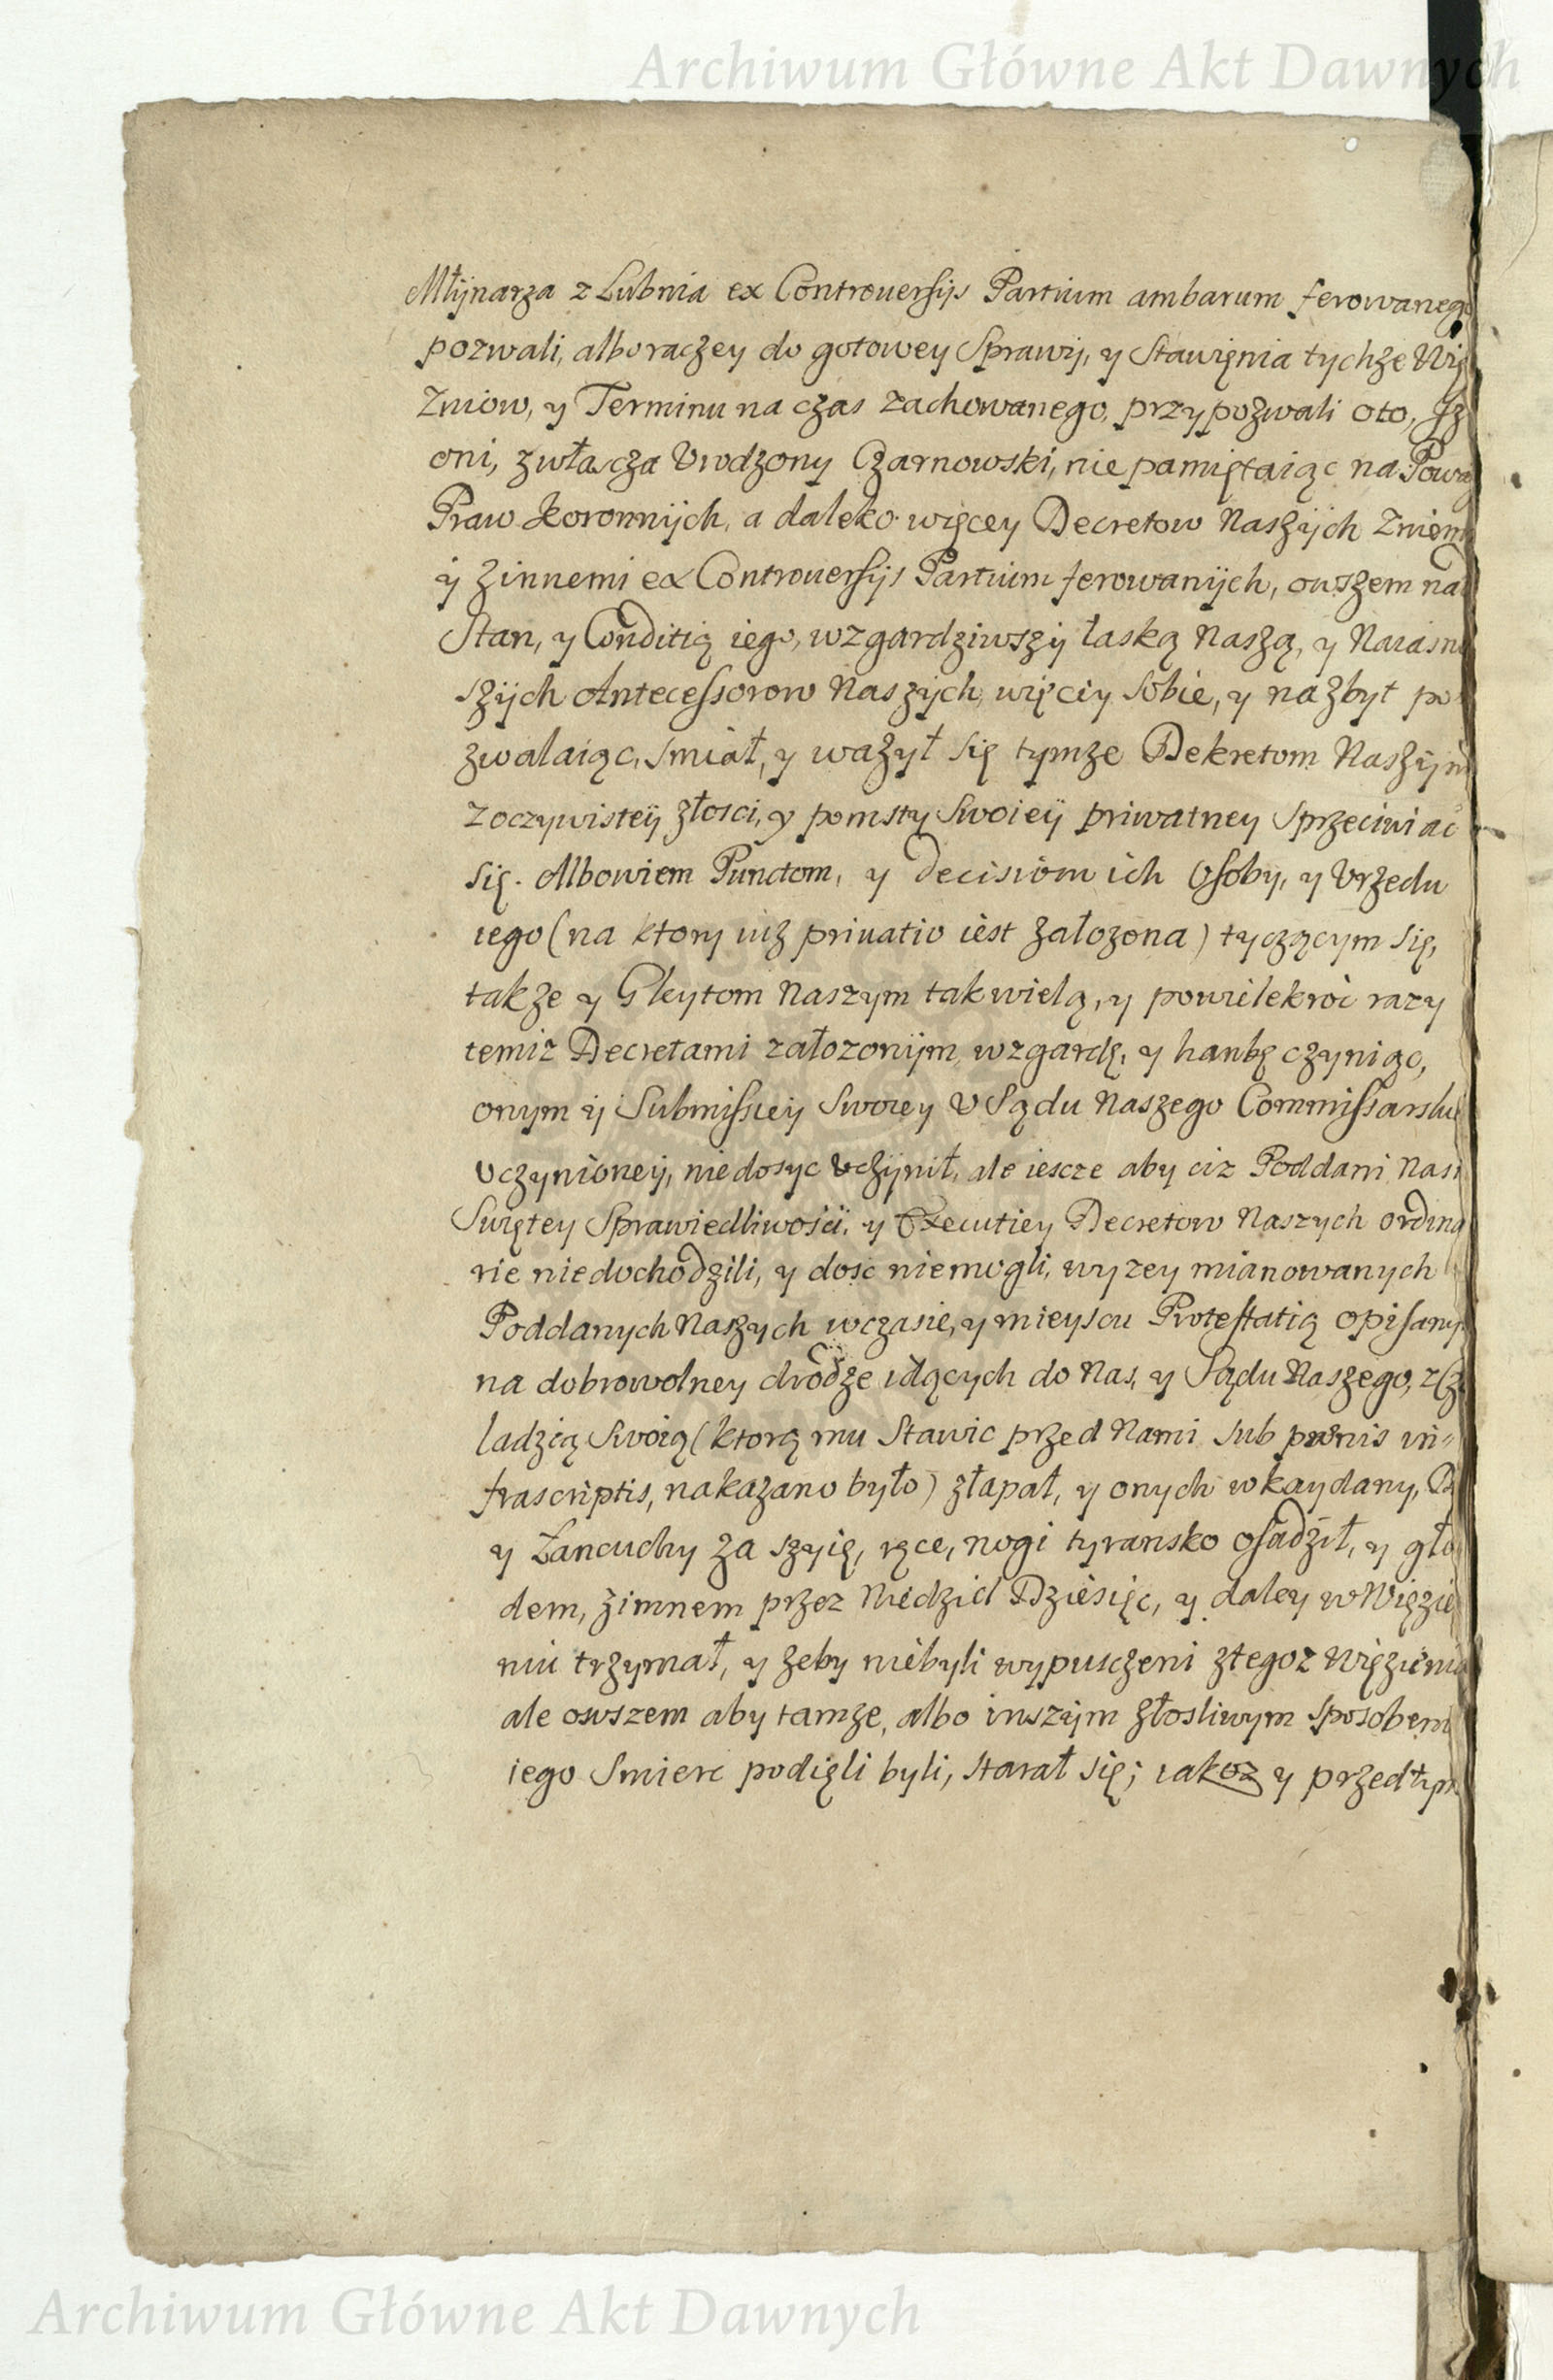 Archiwum Główne Akt Dawnych
Młÿnarza z Lubnia ex Controuersÿs Partium ambarum ferowanego
pozwali, albo raczey do gotowey Sprawÿ, y Stawięnia tychze Wię
zniow, y Terminu na czas zachowanego, przypozwali oto, Jz
oni, zwłascza Vrodzony Czarnowski, nie pamiętaiąc na Powa
Praw Koronnÿch, a daleko więcey Decretow Naszÿch Zniemi
ÿ zinnemi ex Controuersÿs Partium ferowanÿch, owszem nad
Stan, y Conditią iego, wzgardziwszÿ łaską Naszą, y Naiasnie
szÿch Antecessorow Naszÿch, więciy sobie, y nazbyt po
zwalaiąc, smiał, y wazył się tymze Dekretom Naszÿm
z oczywisteÿ złosci, y pomsty Swoieÿ priwatney Sprzeciwiac
się. Albowiem Punctom, y decisiom ich Osoby, y Vrzędu
iego (na ktory iuz priuatio iest załozona) tyczącym się,
takze y Gleytom Naszym tak wielą, y powielekroc razy
temiz Decretami załozonÿm, wzgardę, y hanbę czyniąc,
onym ÿ Submissieÿ Swoiey V Sądu Naszego Commissarsk
Vczynioneÿ, niedosyc Vczÿnił, ale iescze aby ciz Poddani Nasi
Swiętey Sprawiedliwości, y Executiey Decretow Naszych ordina
rie niedochodzili, y dośc niemogli, wyzey mianowanych
Poddanych Naszych w czasie, y mieyscu Protestatią opisany
na dobrowolney drodze idących do Nas, y Sądu Naszego, z Cze
ladzią Swoią (ktorą mu Stawic przed Nami sub pœnis in=
frascriptis, nakazano było) złapał, y onych w kaydany,
y Łancuchy za szyię, ręce, nogi tyransko osadził, y gło
dem, zimnem przez Niedziel Dziesięc, y daley w Więzie
niu trzymał, y zeby niebyli wypusczeni ztegoz Więzienia
ale owszem aby tamze, albo inszÿm złosliwym sposobem
iego Smierc podięli byli, starał się; iakoz y przedtym
Archiwum Główne Akt Dawnych